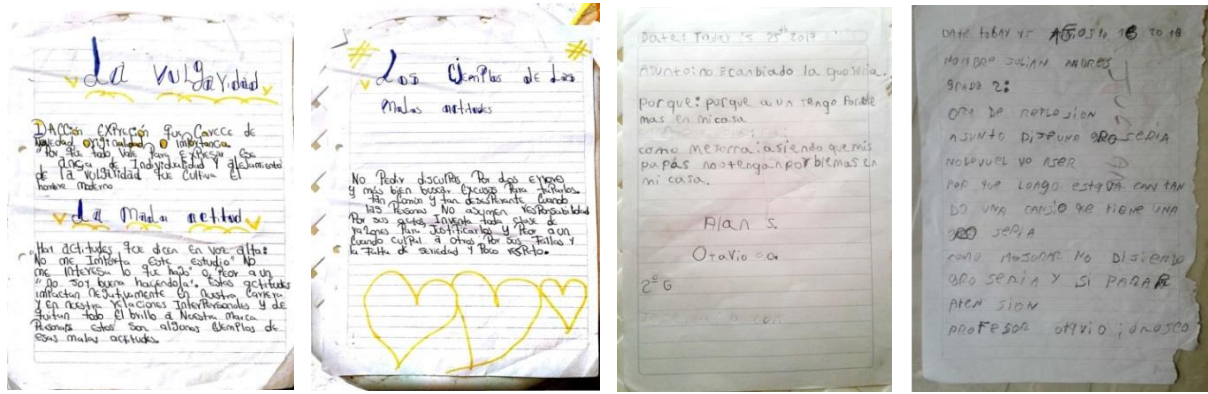 La vulgaridad
Acción Expreción que Carece de
novedad originalidad o importancia
Por que todo vale Para Expresar Ese
ancia de Individualidad y aislamiento
de la vulgaridad que Cultiva El
hombre moderno
La mala actitud
Hay actitudes que dicen en voz alta:
No me Importa Este estudio" No
me interesa lo que hago" o, Peor a un
"no soy buena haciendola". Estas actitudes
impactan negativamente En nuestra Carrera
y En nuestra relaciones InterPersonales y de
quitan todo El brillo a Nuestra marca
Personas estos son algunos Ejemplos de
Esas malas actitudes.
Los Ejemplos de Las
Malas actitudes
No Pedir disculpas Por los errores
y más bien buscar Excusas Para taparlos.
tan común y tan desesPerante Cuando
las Personas NO asumen resPonsabilidad
Por sus actos Inventa toda clase de
razones Para Justificarlos y Peor a un
Cuando culpa a otros Por sus fallas y
la falta de seriedad y Poco resPeto.
Date: Today is 25th 2017
Asunto: no ecanbiado la groseria.
porque: porque aun tengo
mas en micasa
como mejorra: asiendo que mis
papás no tengan porblemas en
mi casa.
Alan S.
Otavio o.a.
2° G
DAte toDAY is AGosto 2018
NOMBRO JULIAN ANDRES
grado 2:
DE
ASUNTO DIJE UNA GROSERIA
NO LO VUEL VO ASER
POR QUE LONGO ESTABA CANTAN
DO UNA QUE TIENE UNA
GRO SERIA
como MEJORAR NO DISIENDO
GROSERIA Y SI PARAR
ATEN SION
PROFESOR otavio